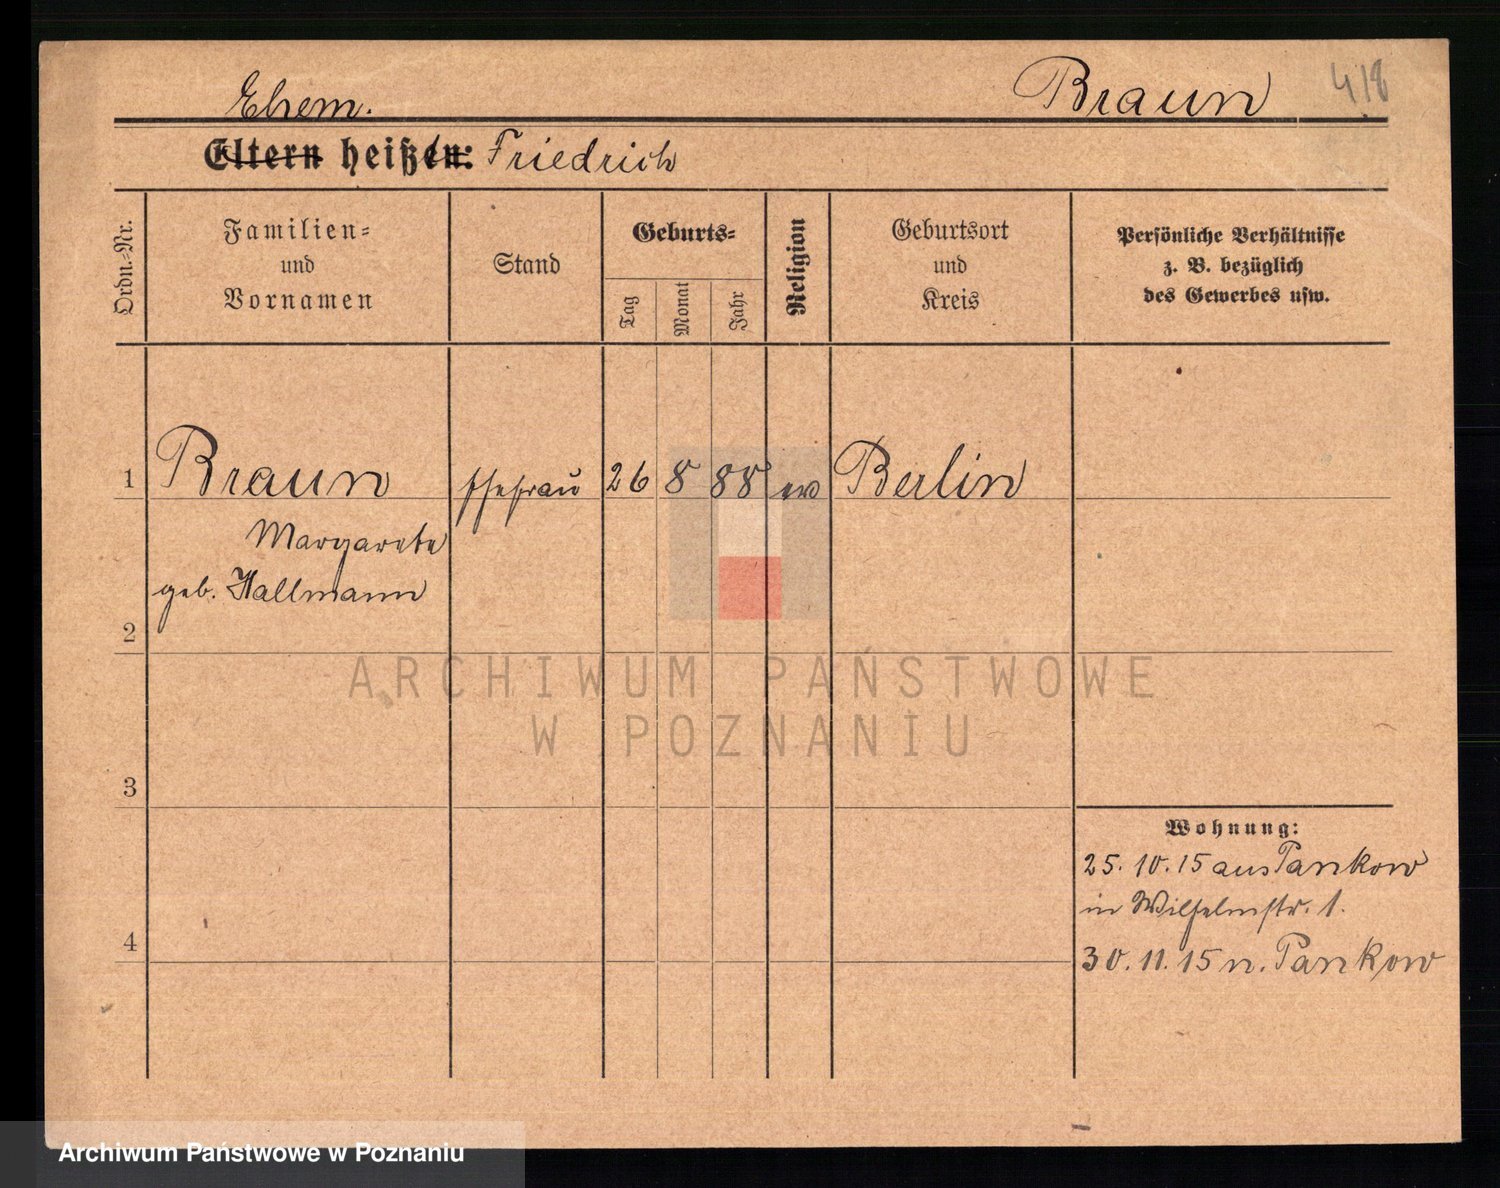 Ehem.
Braun
418
Eltern heißen: Friedrich
Ordn.-Nr.
Familien-
und
Vornamen
Stand
Geburts-
Tag
Monat
Jahr
Religion
Geburtsort
und
Kreis
Persönliche Verhältnisse
z. B. bezüglich
des Gewerbes usw.
1 Braun Ehefrau 26 8 88 ev Berlin
Margarete
geb. Hallmann
2
ARCHIWUM PAŃSTWOWE
W POZNANIU
3
Wohnung:
25. 10. 15 aus Pankow
in Wilhelmstr. 1.
4
30. 11. 15 n. Pankow
Archiwum Państwowe w Poznaniu